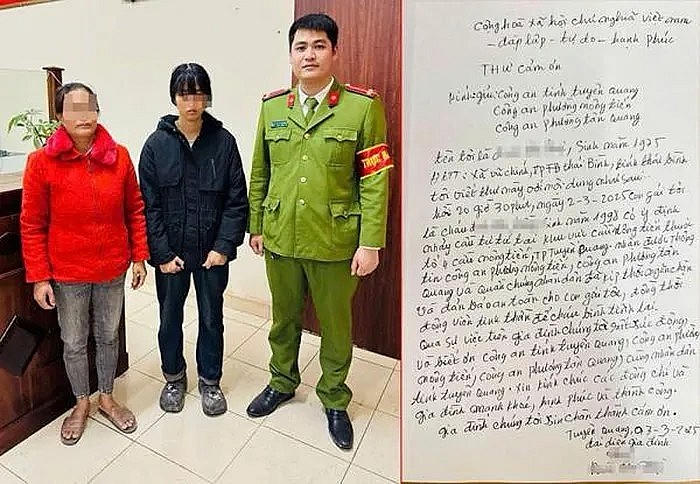 Cộng hoà xã hội chủ nghĩa việt nam
- độc lập - tự do - hạnh phúc
THƯ CẢM ƠN
Kính gửi: Công an tỉnh tuyên Quang
Công an phường nông tiến
Công an phường tân quang
tên tôi là, Sinh năm 1975
HKTT: xã vũ chính, TPTB thái Bình, tỉnh thái bình
tôi viết thư này với nội dung như sau
hồi 20 giờ 30 phút, ngày 2-3-2025 con gái tôi
là cháu, sinh năm 1998 có ý định
nhảy cầu tự tử tại khu vực cầu nông tiến thuộc
tổ 4 cầu nông tiến, TP tuyên Quang. nhận được thông
tin công an phường nông tiến, công an phường tân
Quang và quần chúng nhân dân đã kịp thời ngăn chặn
và đảm bảo an toàn cho con gái tôi, đồng thời
động viên tinh thần để cháu bình tĩnh lại
Qua sự việc trên gia đình chúng tôi rất xúc động
và biết ơn công an tỉnh tuyên Quang, công an phường
nông tiến, công an phường tân Quang, cùng nhân dân
tỉnh tuyên Quang. Xin kính chúc các đồng chí và
gia đình mạnh khoẻ, hạnh phúc và thành công.
Gia đình chúng tôi xin chân thành cảm ơn.
Tuyên Quang, 03-3-2025
đại diện gia đình